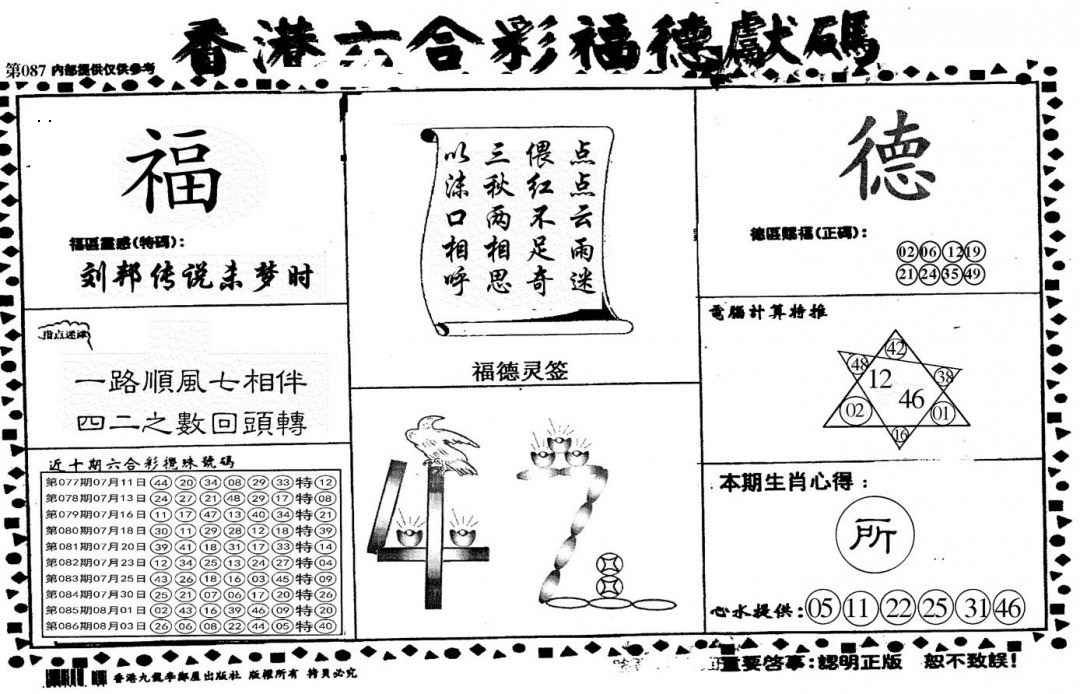 香港六合彩福德獻碼
第087 内部提供仅供参考
福
福區靈感(特碼):
刘邦传说未梦时
指点迷津
一路順風七相伴
四二之數回頭轉
近十期六合彩攪珠號碼
第077期07月11日 44 20 34 08 29 33 特 12
第078期07月13日 24 27 21 48 29 17 特 08
第079期07月16日 11 17 47 13 40 34 特 21
第080期07月18日 30 11 29 28 12 18 特 39
第081期07月20日 39 41 18 31 17 33 特 14
第082期07月23日 12 34 25 13 24 27 特 04
第083期07月25日 43 26 18 16 03 45 特 09
第084期07月30日 25 21 07 06 17 20 特 26
第085期08月01日 02 43 16 39 46 09 特 20
第086期08月03日 26 06 08 22 44 05 特 40
点点云雨迷
偎红不足奇
三秋两相思
以沫口相呼
福德灵签
42
德
德區賜福(正碼):
02 06 12 19
21 24 35 49
電腦計算特推
42
48 38
12
46
02 01
16
本期生肖心得:
所
心水提供: 05 11 22 25 31 46
香港九龍李鄭屋出版社 版權所有 拷貝必究
重要啓事:認明正版 恕不致誤!